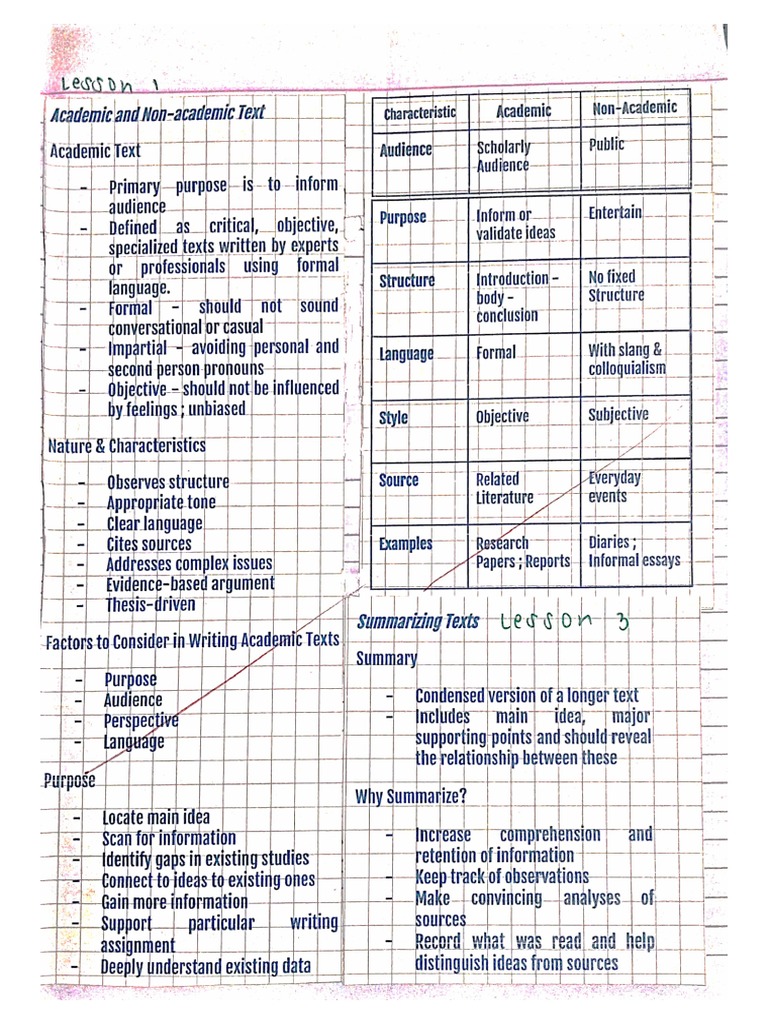 Lesson 1
Academic and Non-academic Text
Academic Text
- Primary purpose is to inform
audience
- Defined as critical, objective,
specialized texts written by experts
or professionals using formal
language.
- Formal – should not sound
conversational or casual
- Impartial – avoiding personal and
second person pronouns
- Objective – should not be influenced
by feelings ; unbiased
Nature & Characteristics
- Observes structure
- Appropriate tone
- Clear language
- Cites sources
- Addresses complex issues
- Evidence-based argument
- Thesis-driven
Factors to Consider in Writing Academic Texts
- Purpose
- Audience
- Perspective
- Language
Purpose
- Locate main idea
- Scan for information
- Identify gaps in existing studies
- Connect to ideas to existing ones
- Gain more information
- Support particular writing
assignment
- Deeply understand existing data
Characteristic Academic Non-Academic
Audience Scholarly Public
Audience
Purpose Inform or Entertain
validate ideas
Structure Introduction – No fixed
body – Structure
conclusion
Language Formal With slang &
colloquialism
Style Objective Subjective
Source Related Everyday
Literature events
Examples Research Diaries ;
Papers ; Reports Informal essays
Summarizing Texts Lesson 3
Summary
- Condensed version of a longer text
- Includes main idea, major
supporting points and should reveal
the relationship between these
Why Summarize?
- Increase comprehension and
retention of information
- Keep track of observations
- Make convincing analyses of
sources
- Record what was read and help
distinguish ideas from sources